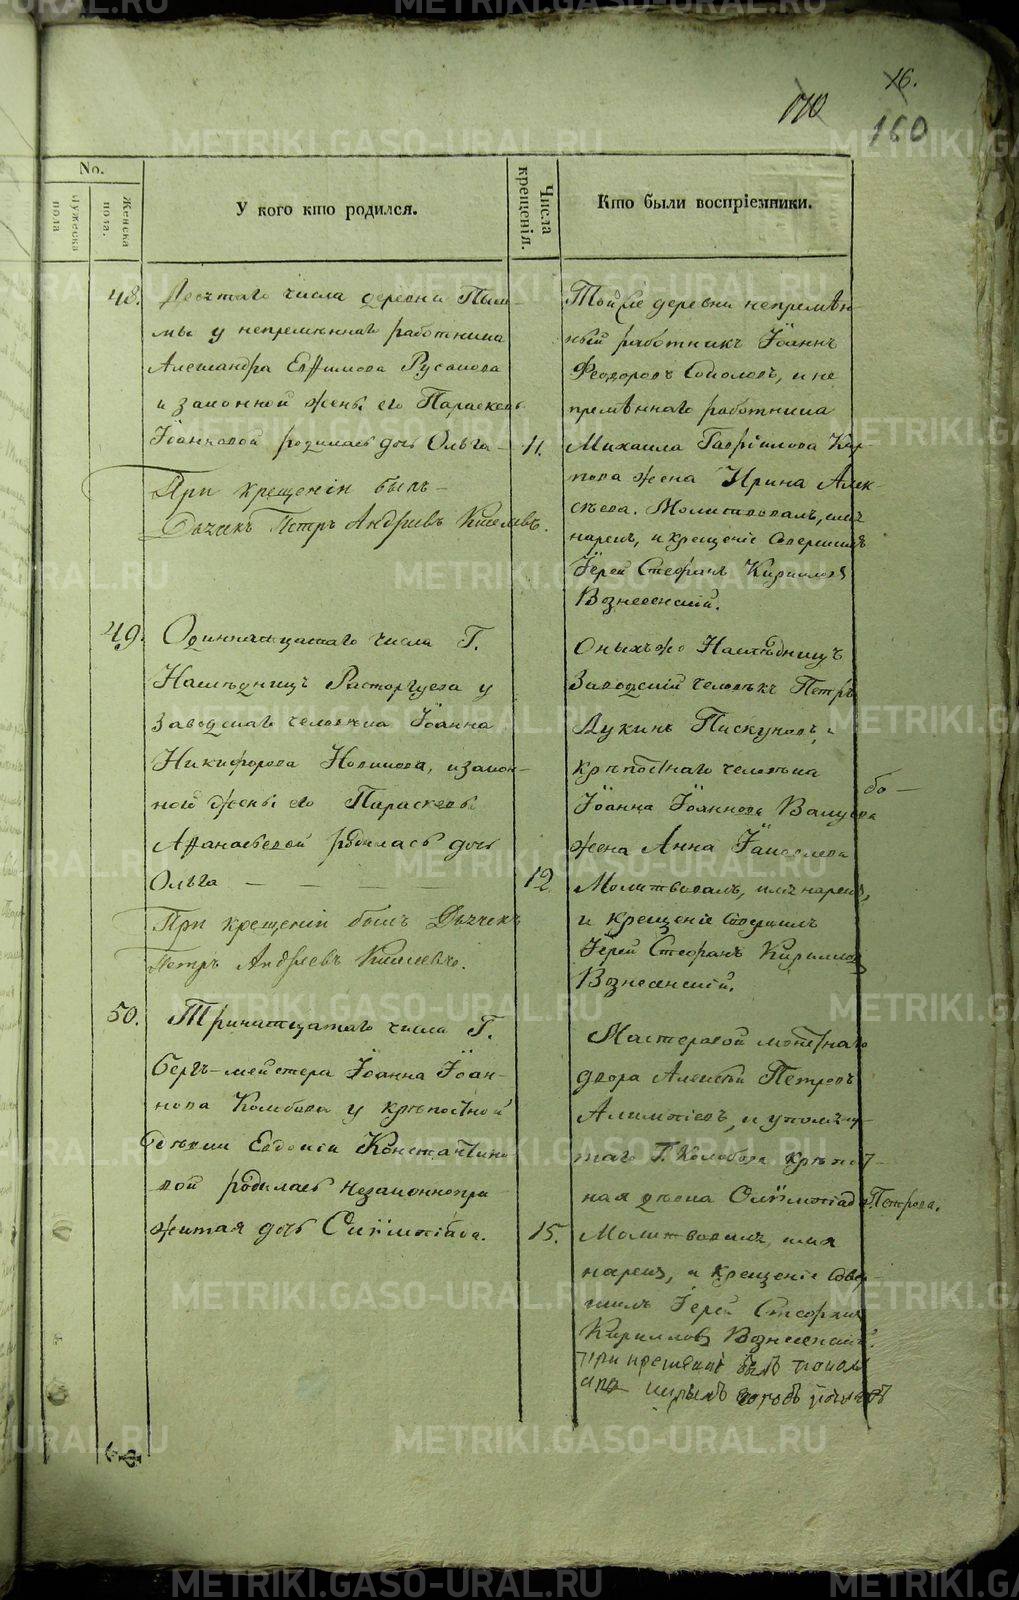 16.
170
160
No.
Мужеска пола
Женска пола.
У кого кто родился.
Числа крещенія.
Кто были воспріемники.
48.
Десятаго числа деревни Пыш-
мы у непремѣннаго работника
Александра Евѳимова Русакова
и законной жены его Параскевы
Іоанновой родилась дочь Ольга -
11.
При крещеніи былъ -
Дьячекъ Петръ Андреевъ Киселевъ.
Той же деревни непремѣн-
ный работникъ Іоаннъ
Феодоровъ Соколовъ, и не
премѣннаго работника
Михаила Гавріилова Кар-
пова жена Ирина Алек-
сѣева. Молитвовалъ, имя
нарекъ, и крещеніе совершилъ
Іерей Стефанъ Кирилловъ
Вознесенскій.
49.
Одиннатцатаго числа Г.
Наслѣдницъ Расторгуева у
заводскаго человѣка Іоанна
Никифорова Новикова, и закон-
ной жены его Параскевы
Аѳанасьевой родилась дочь
Ольга - - - -
12.
При крещеніи былъ Дьячекъ
Петръ Андреевъ Киселевъ.
Оныхъ же Наслѣдницъ
Заводскій человѣкъ Петръ
Лукинъ Пискуновъ, и
крѣпостнаго человѣка
Іоанна Іоаннова Валуева
бо -
жена Анна Іаковлева
Молитвовалъ, имя нарекъ,
и крещеніе совершилъ
Іерей Стефанъ Кирилловъ
Вознесенскій.
50.
Тринатцатаго числа Г.
бергъ-мейстера Іоанна Іоан-
нова Колобова у крѣпостной
дѣвки Евдокіи Константино
вой родилась незаконнопри
житая дочь Олимпіада.
15.
Мастеровой монетнаго
двора Алексѣй Петровъ
и упомяну-
таго Г. Колобова крѣпост-
ная дѣвка Олимпіада Петрова.
Молитвовалъ, имя
нарекъ, и крещеніе совер-
шилъ Іерей Стефанъ
Кирилловъ Вознесенскій.
При крещеніи былъ
METRIKI.GASO-URAL.RU